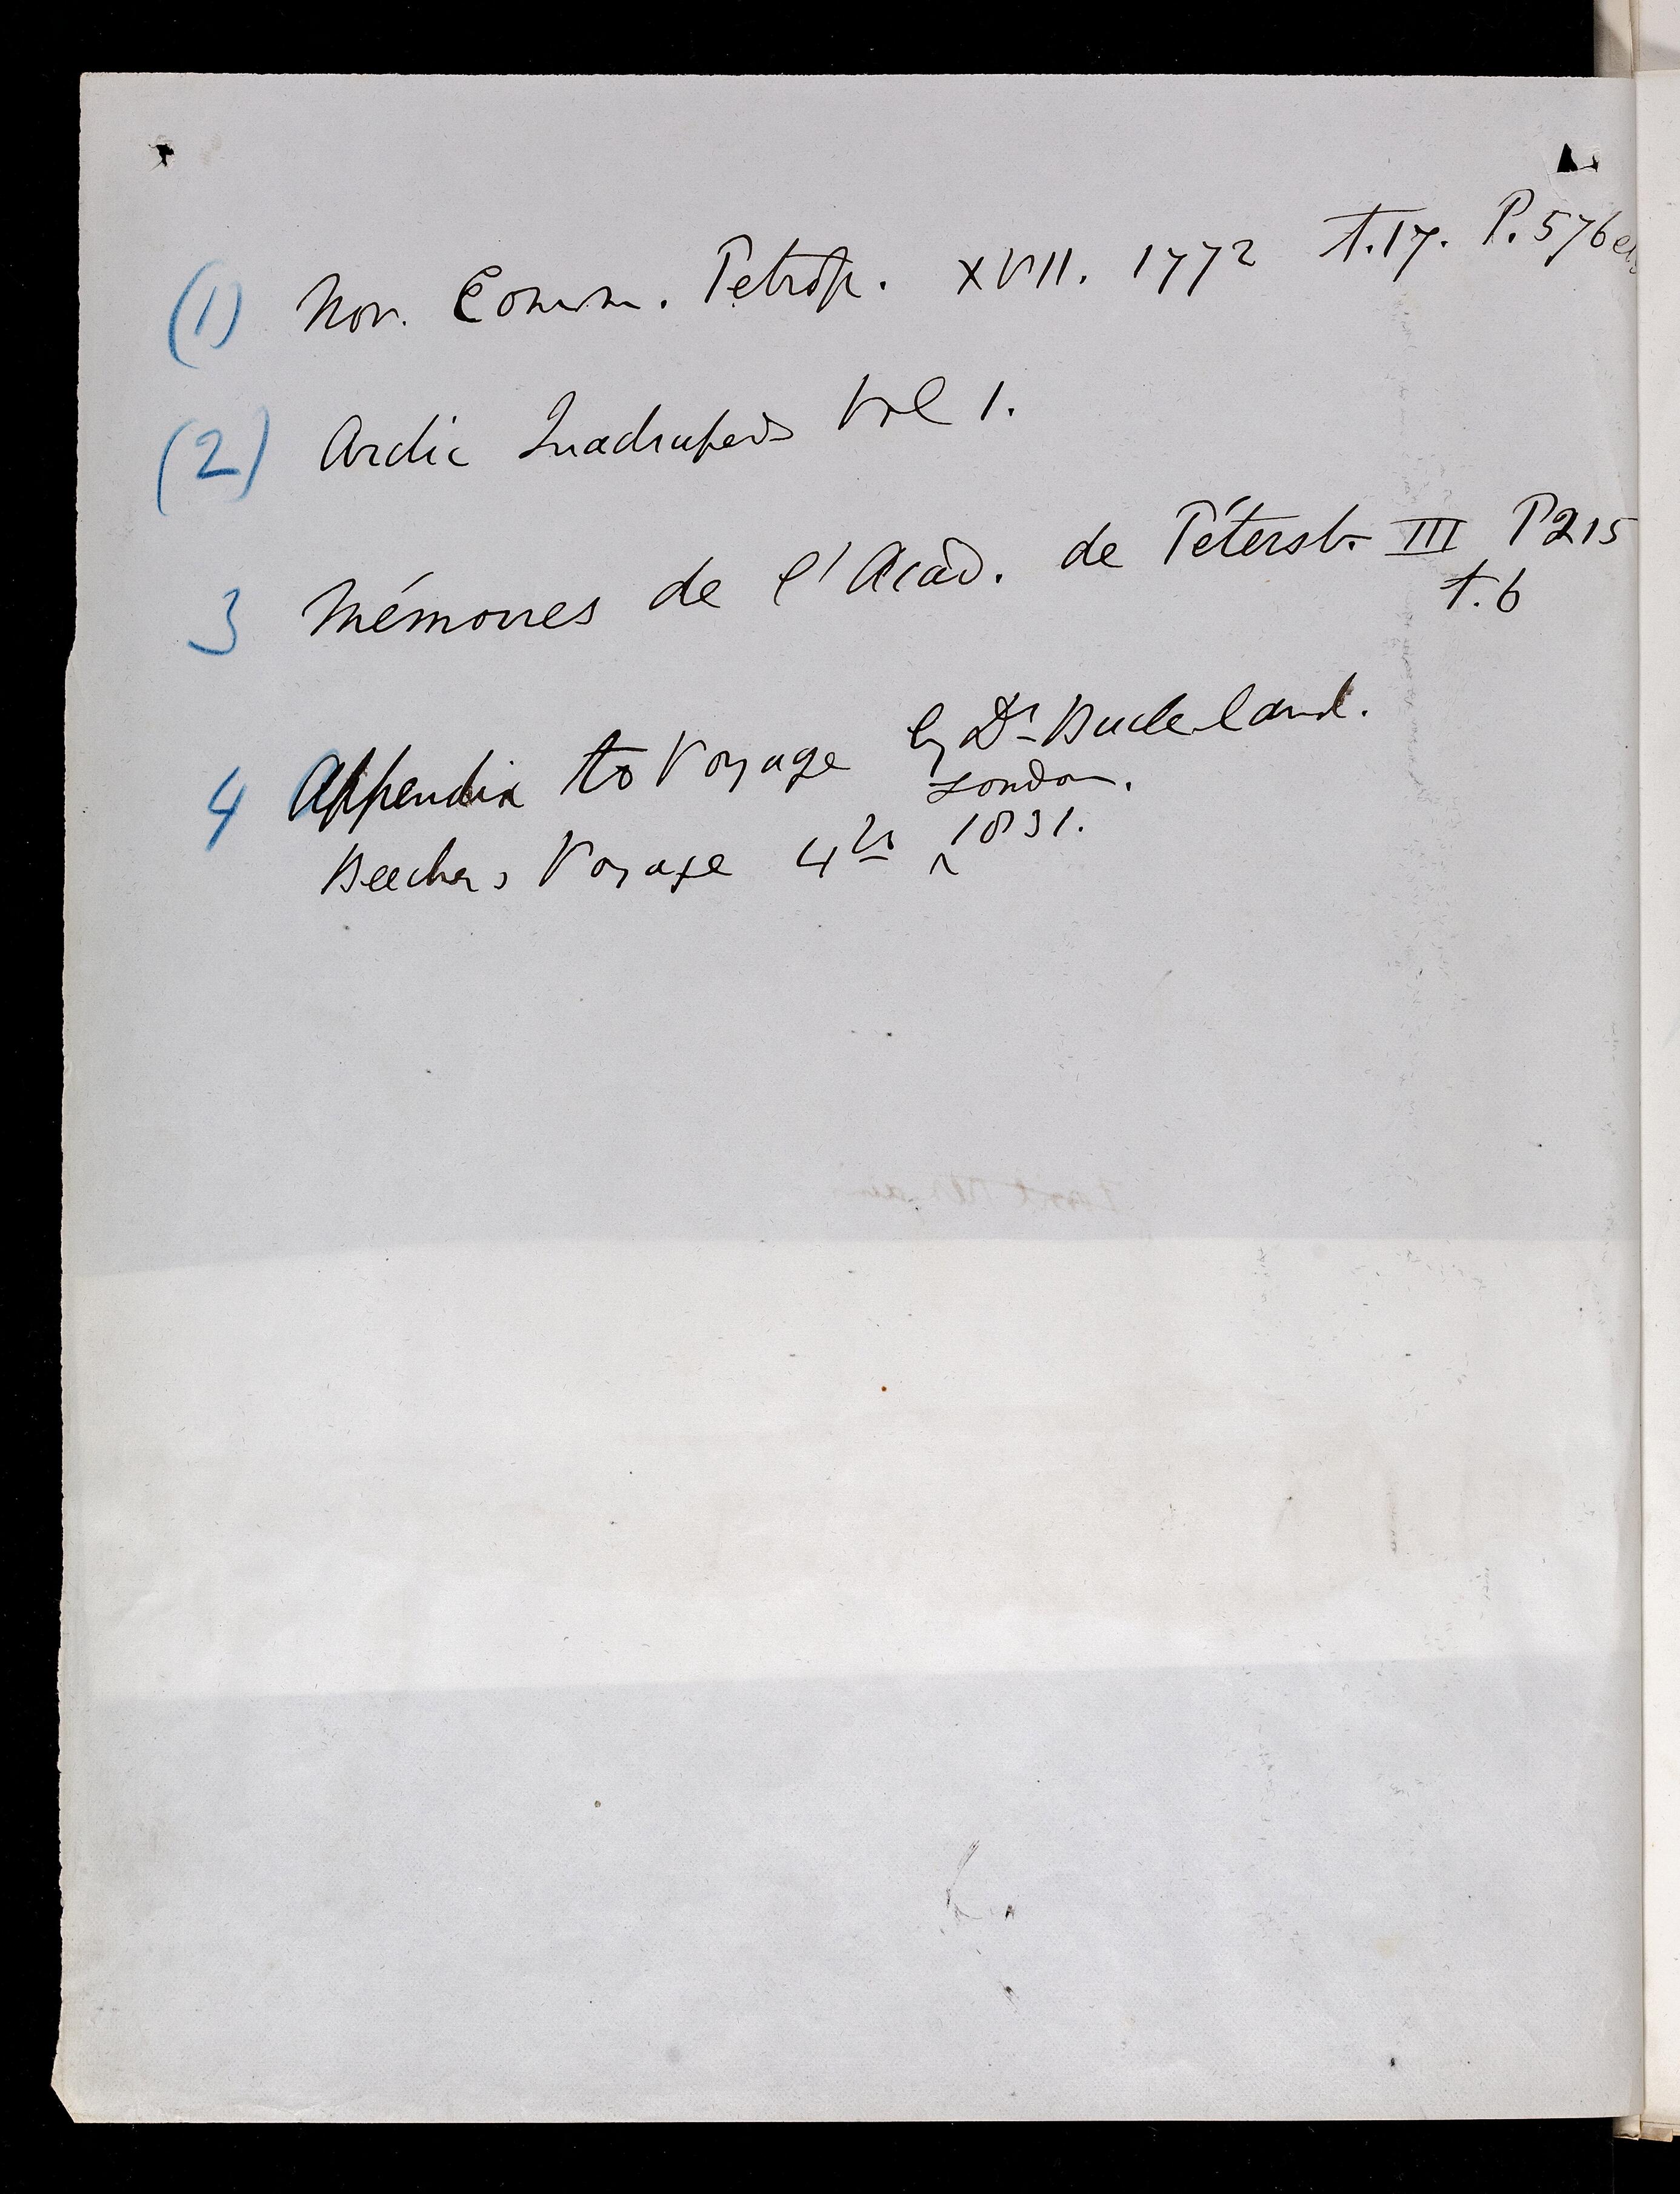 (1) Nov. Comm. Petrop. XVII. 1772 t.17. P. 576
(2) Arctic Quadrupeds Vol 1.
3 Mémoires de l'Acad. de Pétersb. III P 215
t. 6
4 Appendix to Voyage by Dr Buckland.
London.
Beechey's Voyage 4to ^ 1831.